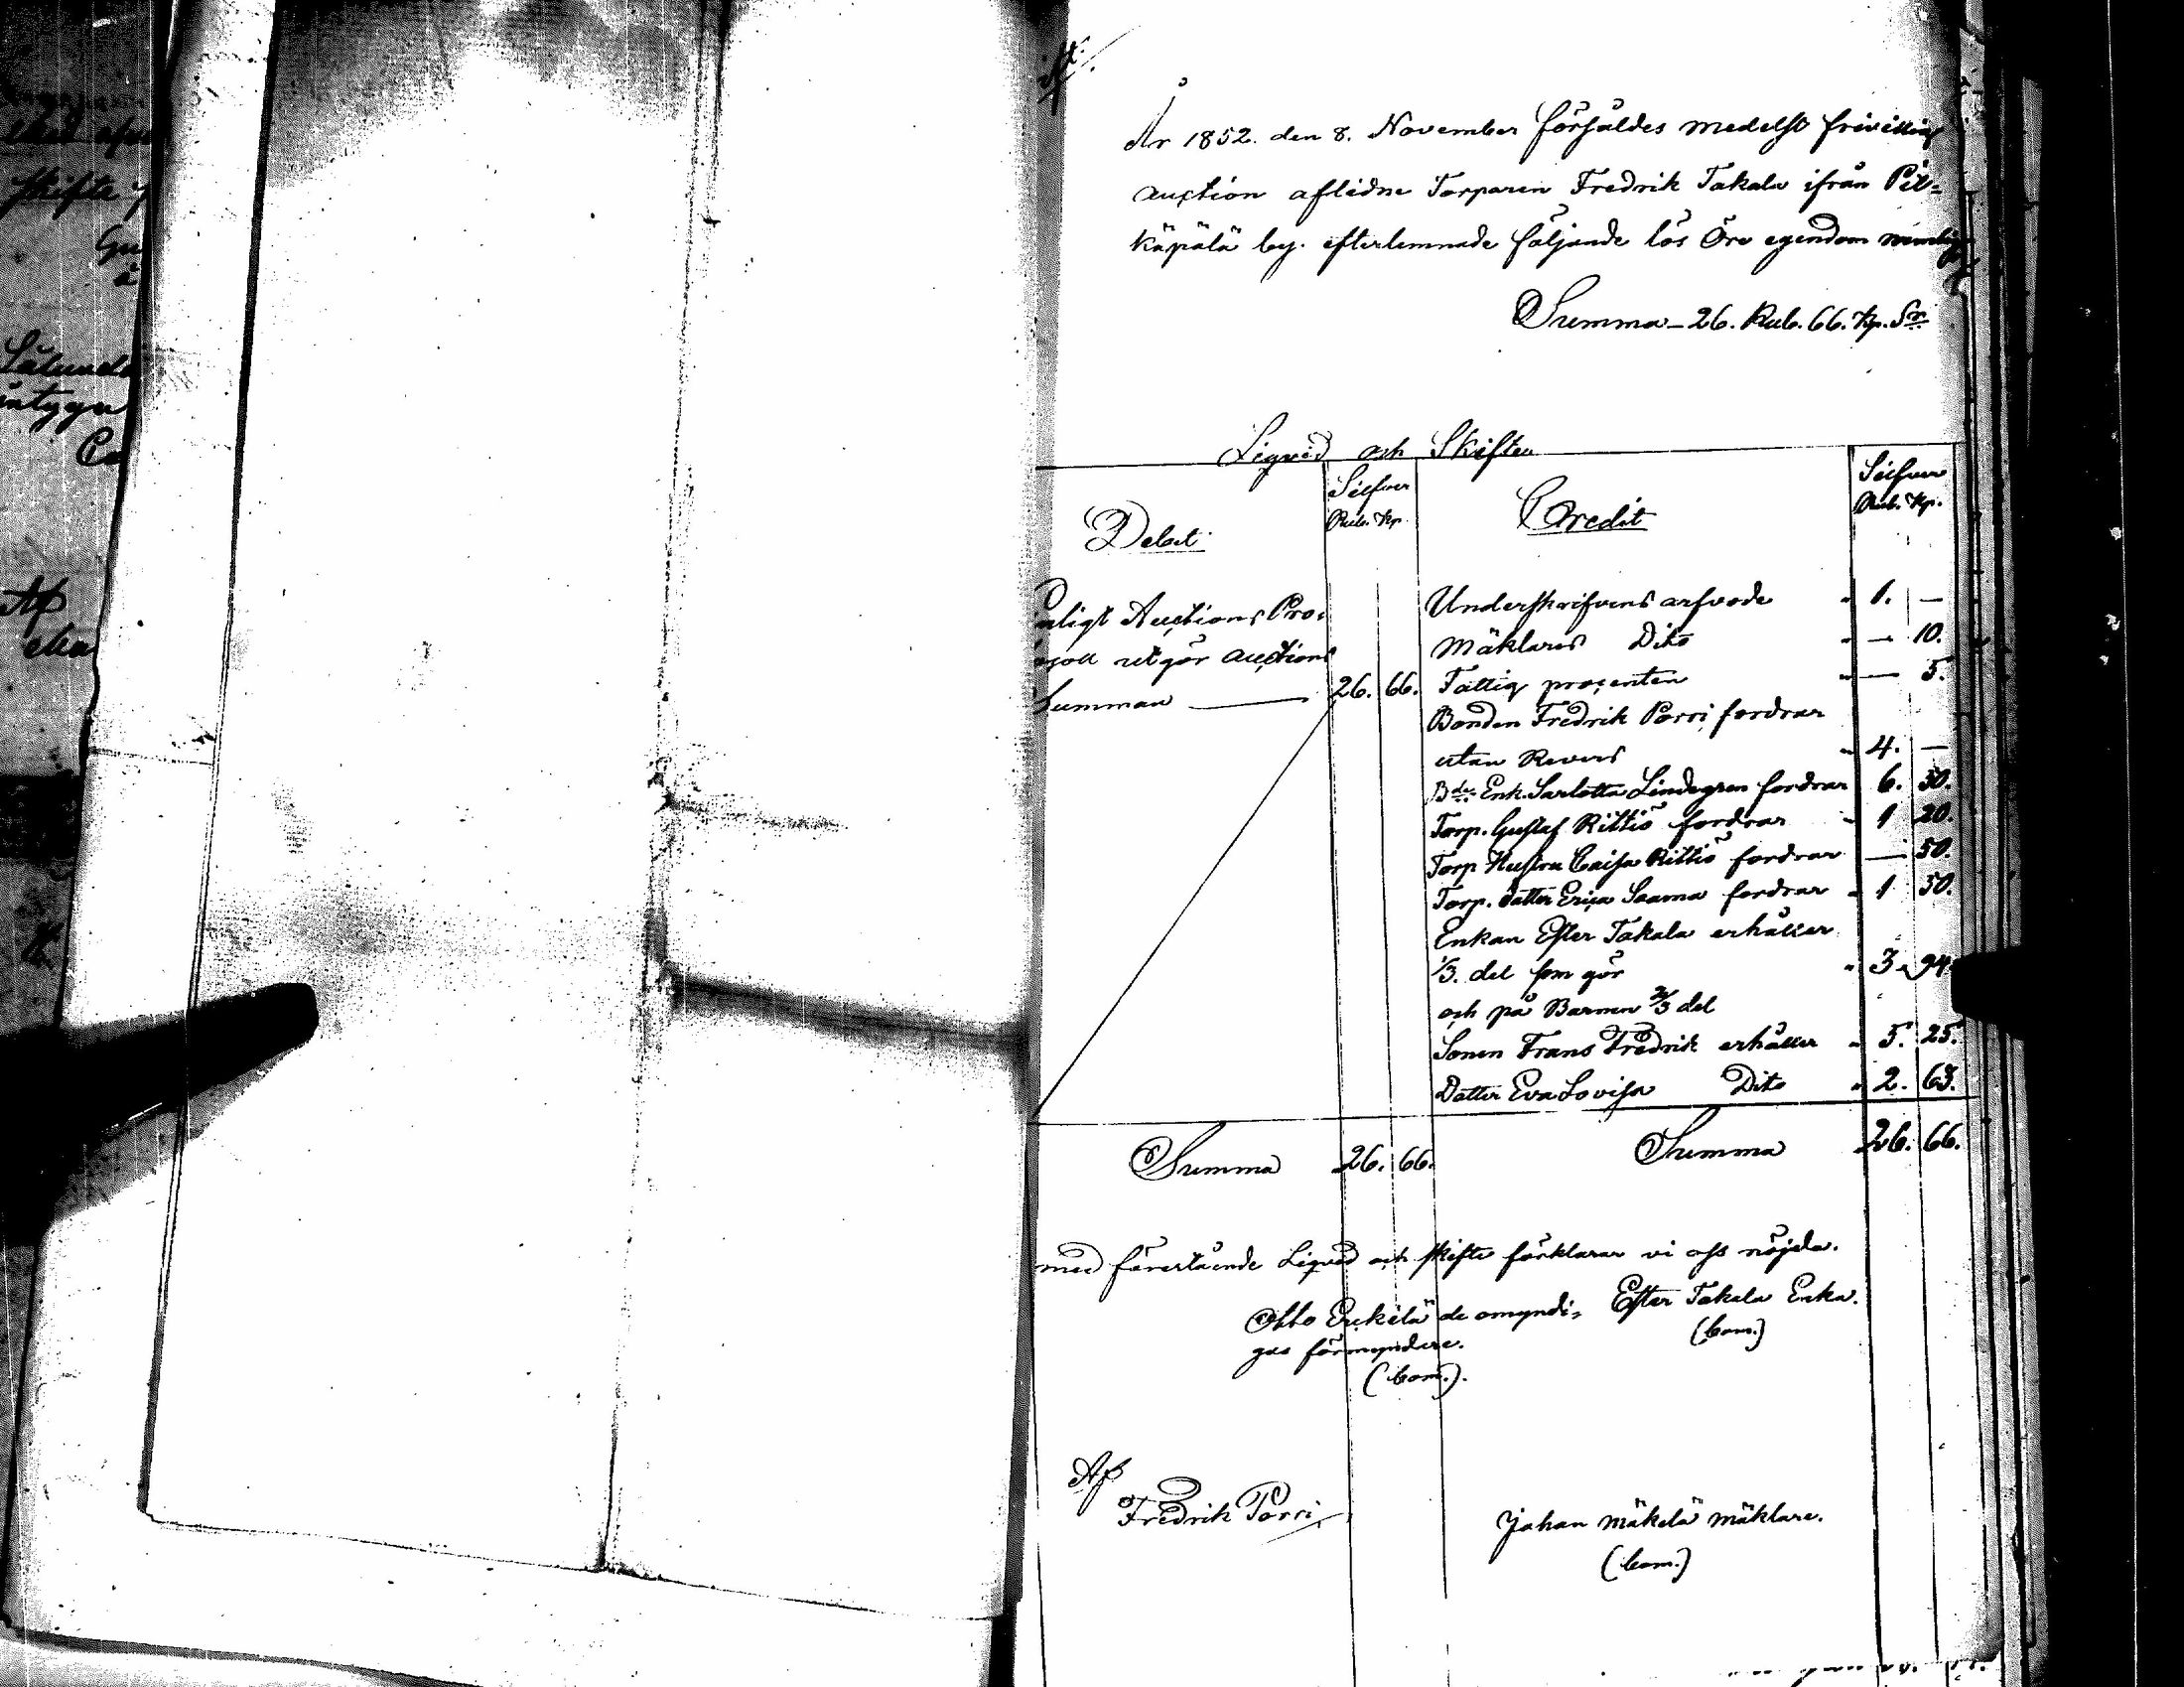 År 1852. den 8. November försåldes medelst frivillig
auction aflidne Torparen Fredrik Takala ifrån Pil=
käpälä by. efterlemnade följande lös Öre egendom nemligen
Summa - 26. Rub. 66. Kp. Sr.
Liqvid och Skiften
Debet
Silfver
Rub. Kp.
Credit
Silfver
Rub. Kp.
nligt Auctions Pro=
ocoll utgör auctions
Summan — 26. 66.
Underskrifvens arfvode " 1. —
Mäklares Dito " — 10.
Fattig procenten " — 5.
Bonden Fredrik Porri fordrar
utan Revers " 4. —
Bde. Enk. Sarlotta Lindegren fordrar 6. 50.
Torp. Gustaf Rittiö fordrar " 1 20.
Torp Hustru Caisa Rittiö fordrar — 50.
Torp. dotter Erica Saama fordrar " 1 50.
Enkan Ester Takala erhåller
1/3. del som gör " 3. 94.
och på Barnen 2/3 del
Sonen Frans Fredrik erhåller " 5. 25.
Dotter Eva Lovisa Dito " 2. 63.
Summa 26. 66. Summa 26. 66.
med förestående Liqvid och skifte förklarar vi oss nöjda.
Otto Erckilä de omyndi=
gas förmyndare.
(bom.).
Ester Takala Enka.
(bom.)
Af
Fredrik Porri
Johan mäkelä mäklare.
(bom.)